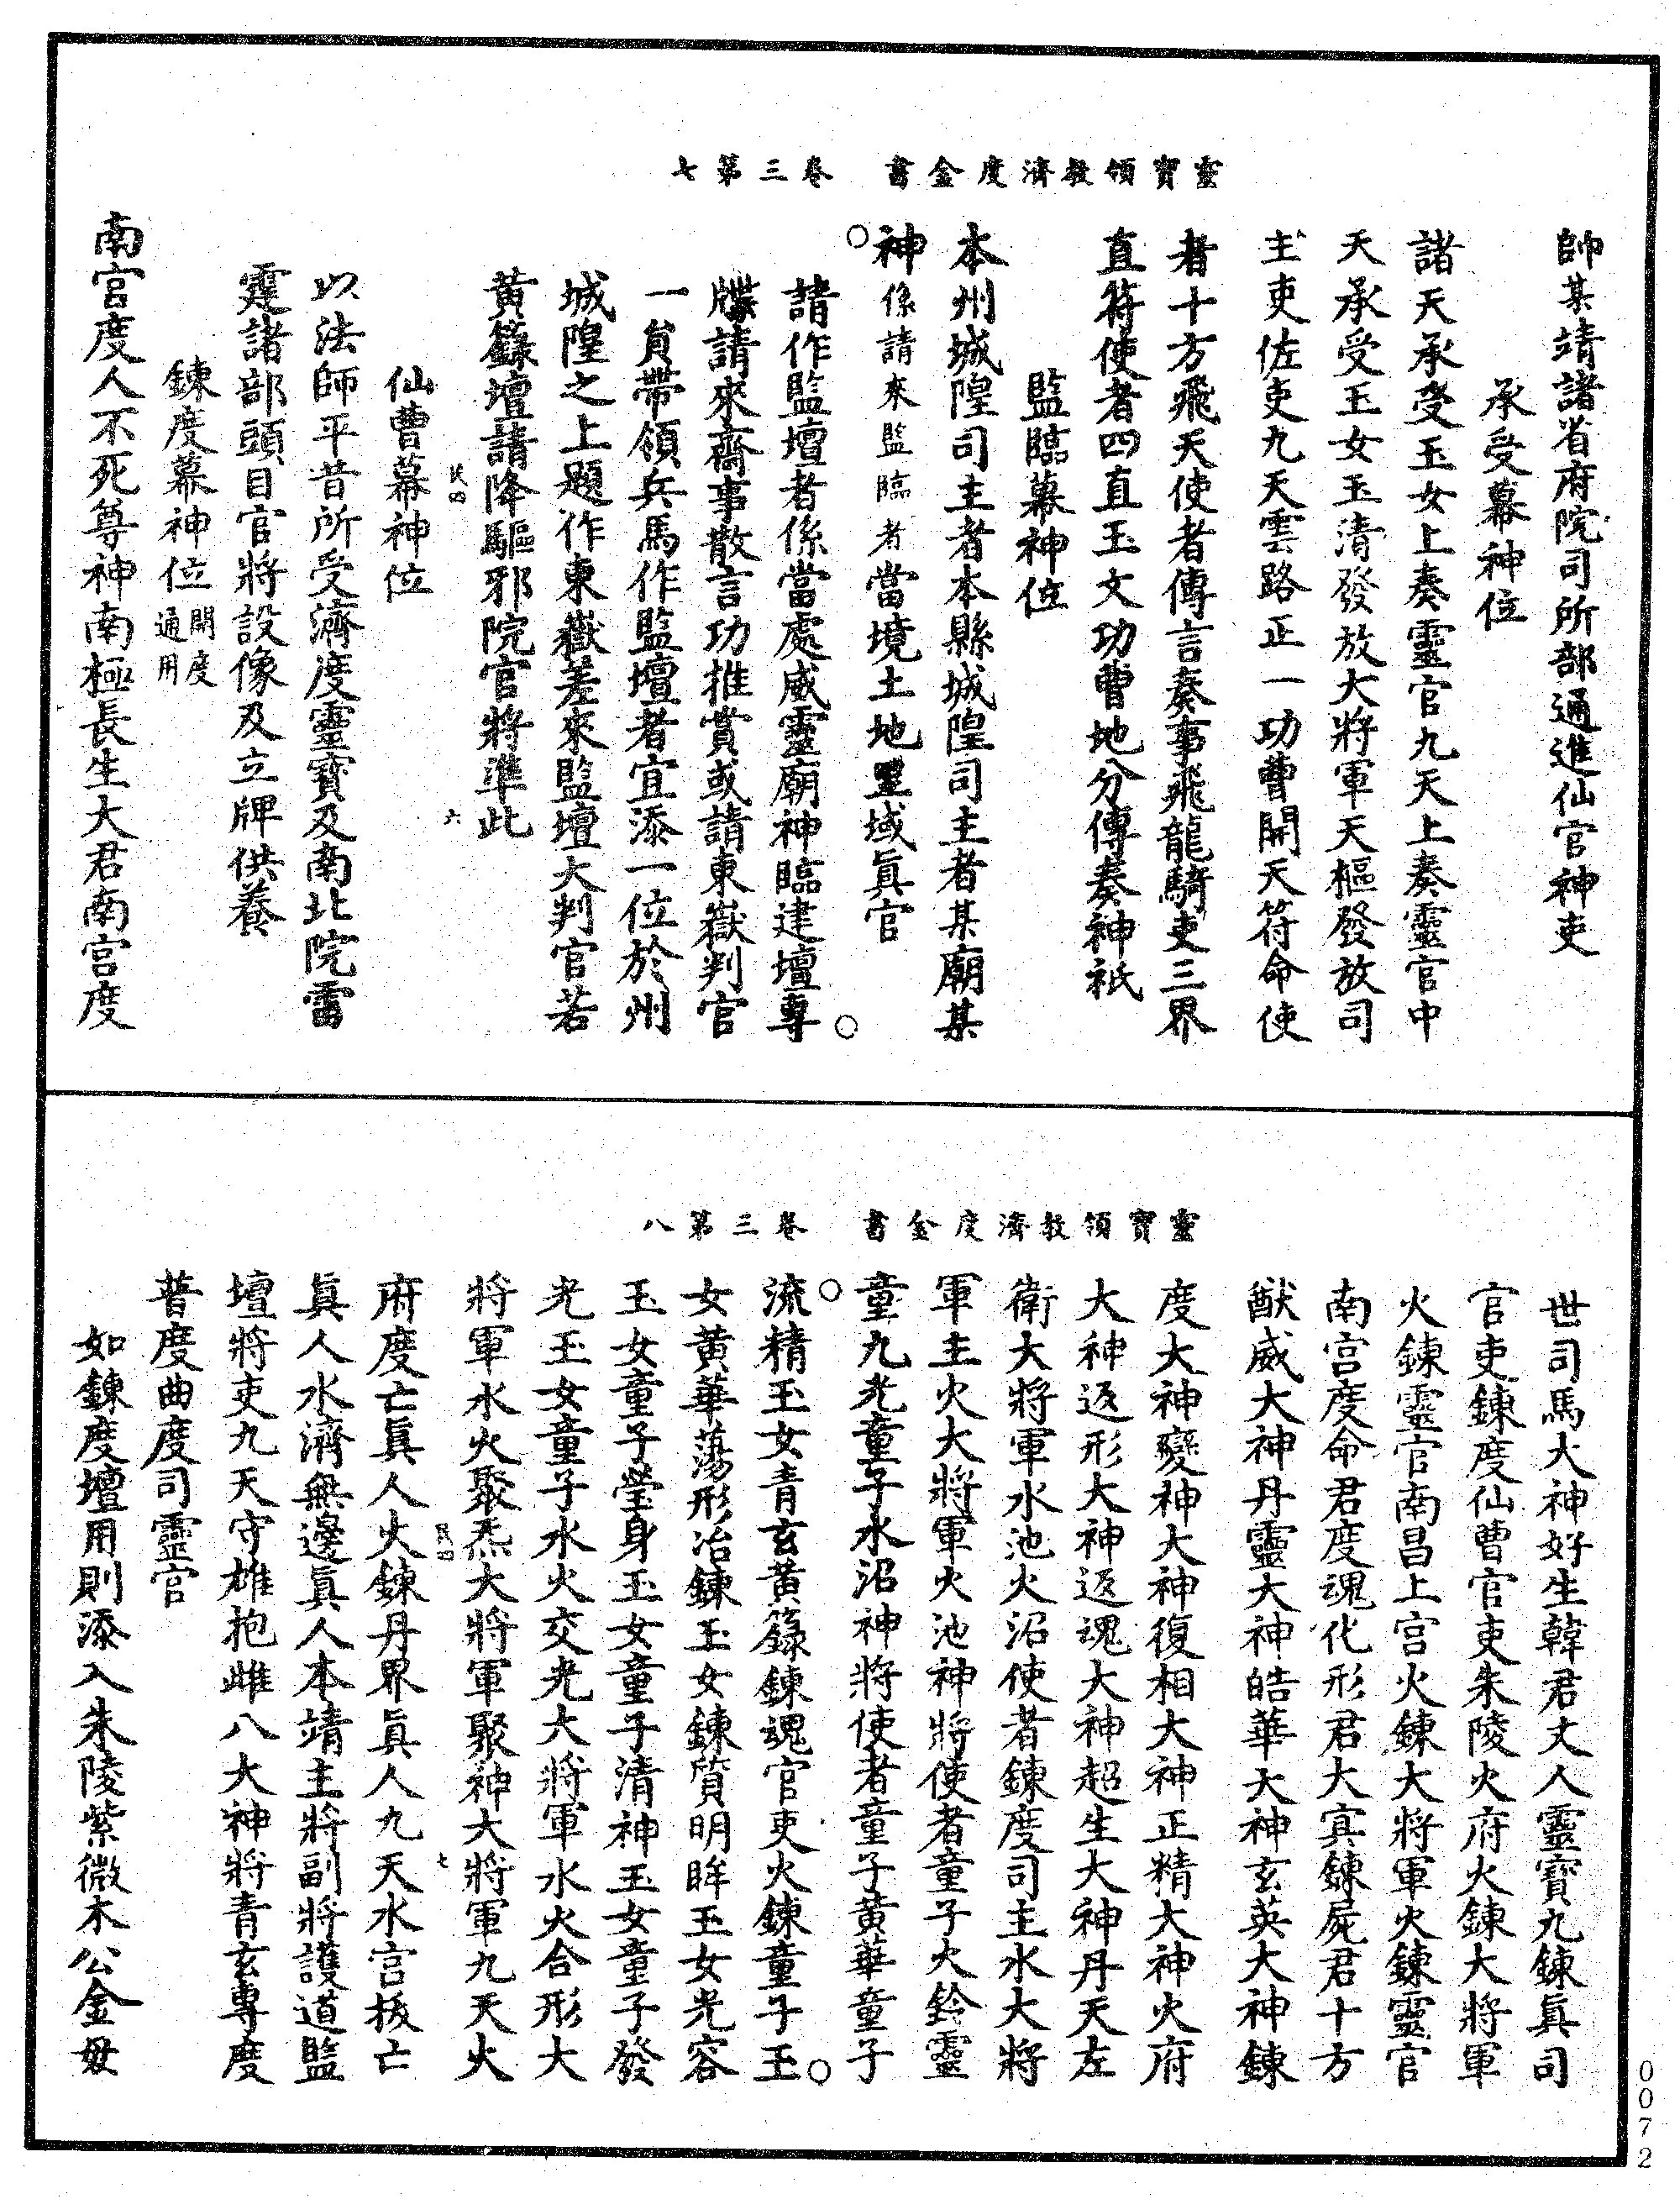 靈寶領教濟度金書　卷三第七
帥某靖諸省府院司所部通進仙官神吏
承受幕神位
諸天承受玉女上奏靈官九天上奏靈官中
天承受玉女玉清發放大將軍天樞發放司
主吏佐吏九天雲路正一功曹開天符命使
者十方飛天使者傳言奏事飛龍騎吏三界
直符使者四直玉文功曹地分傳奏神祇
監臨幕神位
本州城隍司主者本縣城隍司主者某廟某
神係請來監臨者當境土地里域眞官
請作監壇者係當處威靈廟神臨建壇專
牒請來齋事散言功推賞或請東嶽判官
一員帶領兵馬作監壇者宜添一位於州
城隍之上題作東嶽差來監壇大判官若
黃籙壇請降驅邪院官將準此
民四　六
仙曹幕神位
以法師平昔所受濟度靈寶及南北院雷
霆諸部頭目官將設像及立牌供養
鍊度幕神位開度通用
南宮度人不死尊神南極長生大君南宮度
靈寶領教濟度金書　卷三第八
世司馬大神好生韓君丈人靈寶九鍊眞司
官吏鍊度仙曹官吏朱陵火府火鍊大將軍
火鍊靈官南昌上宮火鍊大將軍火鍊靈官
南宮度命君度魂化形君大寘鍊屍君十方
猷威大神丹靈大神皓華大神玄英大神鍊
度大神變神大神復相大神正精大神火府
大神返形大神返魂大神超生大神丹天左
衛大將軍水池火沼使者鍊度司主水大將
軍主火大將軍火池神將使者童子火鈴靈
童九光童子水沼神將使者童子黃華童子
流精玉女青玄黃籙鍊魂官吏火鍊童子玉
女黃華蕩形冶鍊玉女鍊質明眸玉女光容
玉女童子瑩身玉女童子清神玉女童子發
光玉女童子水火交光大將軍水火合形大
將軍水火聚炁大將軍聚神大將軍九天火
民四　七
府度亡眞人火鍊丹界眞人九天水宮拔亡
眞人水濟無邊眞人本靖主將副將護道監
壇將吏九天守雄抱雌八大神將青玄專度
普度曲度司靈官
如鍊度壇用則添入朱陵紫微木公金母
0072